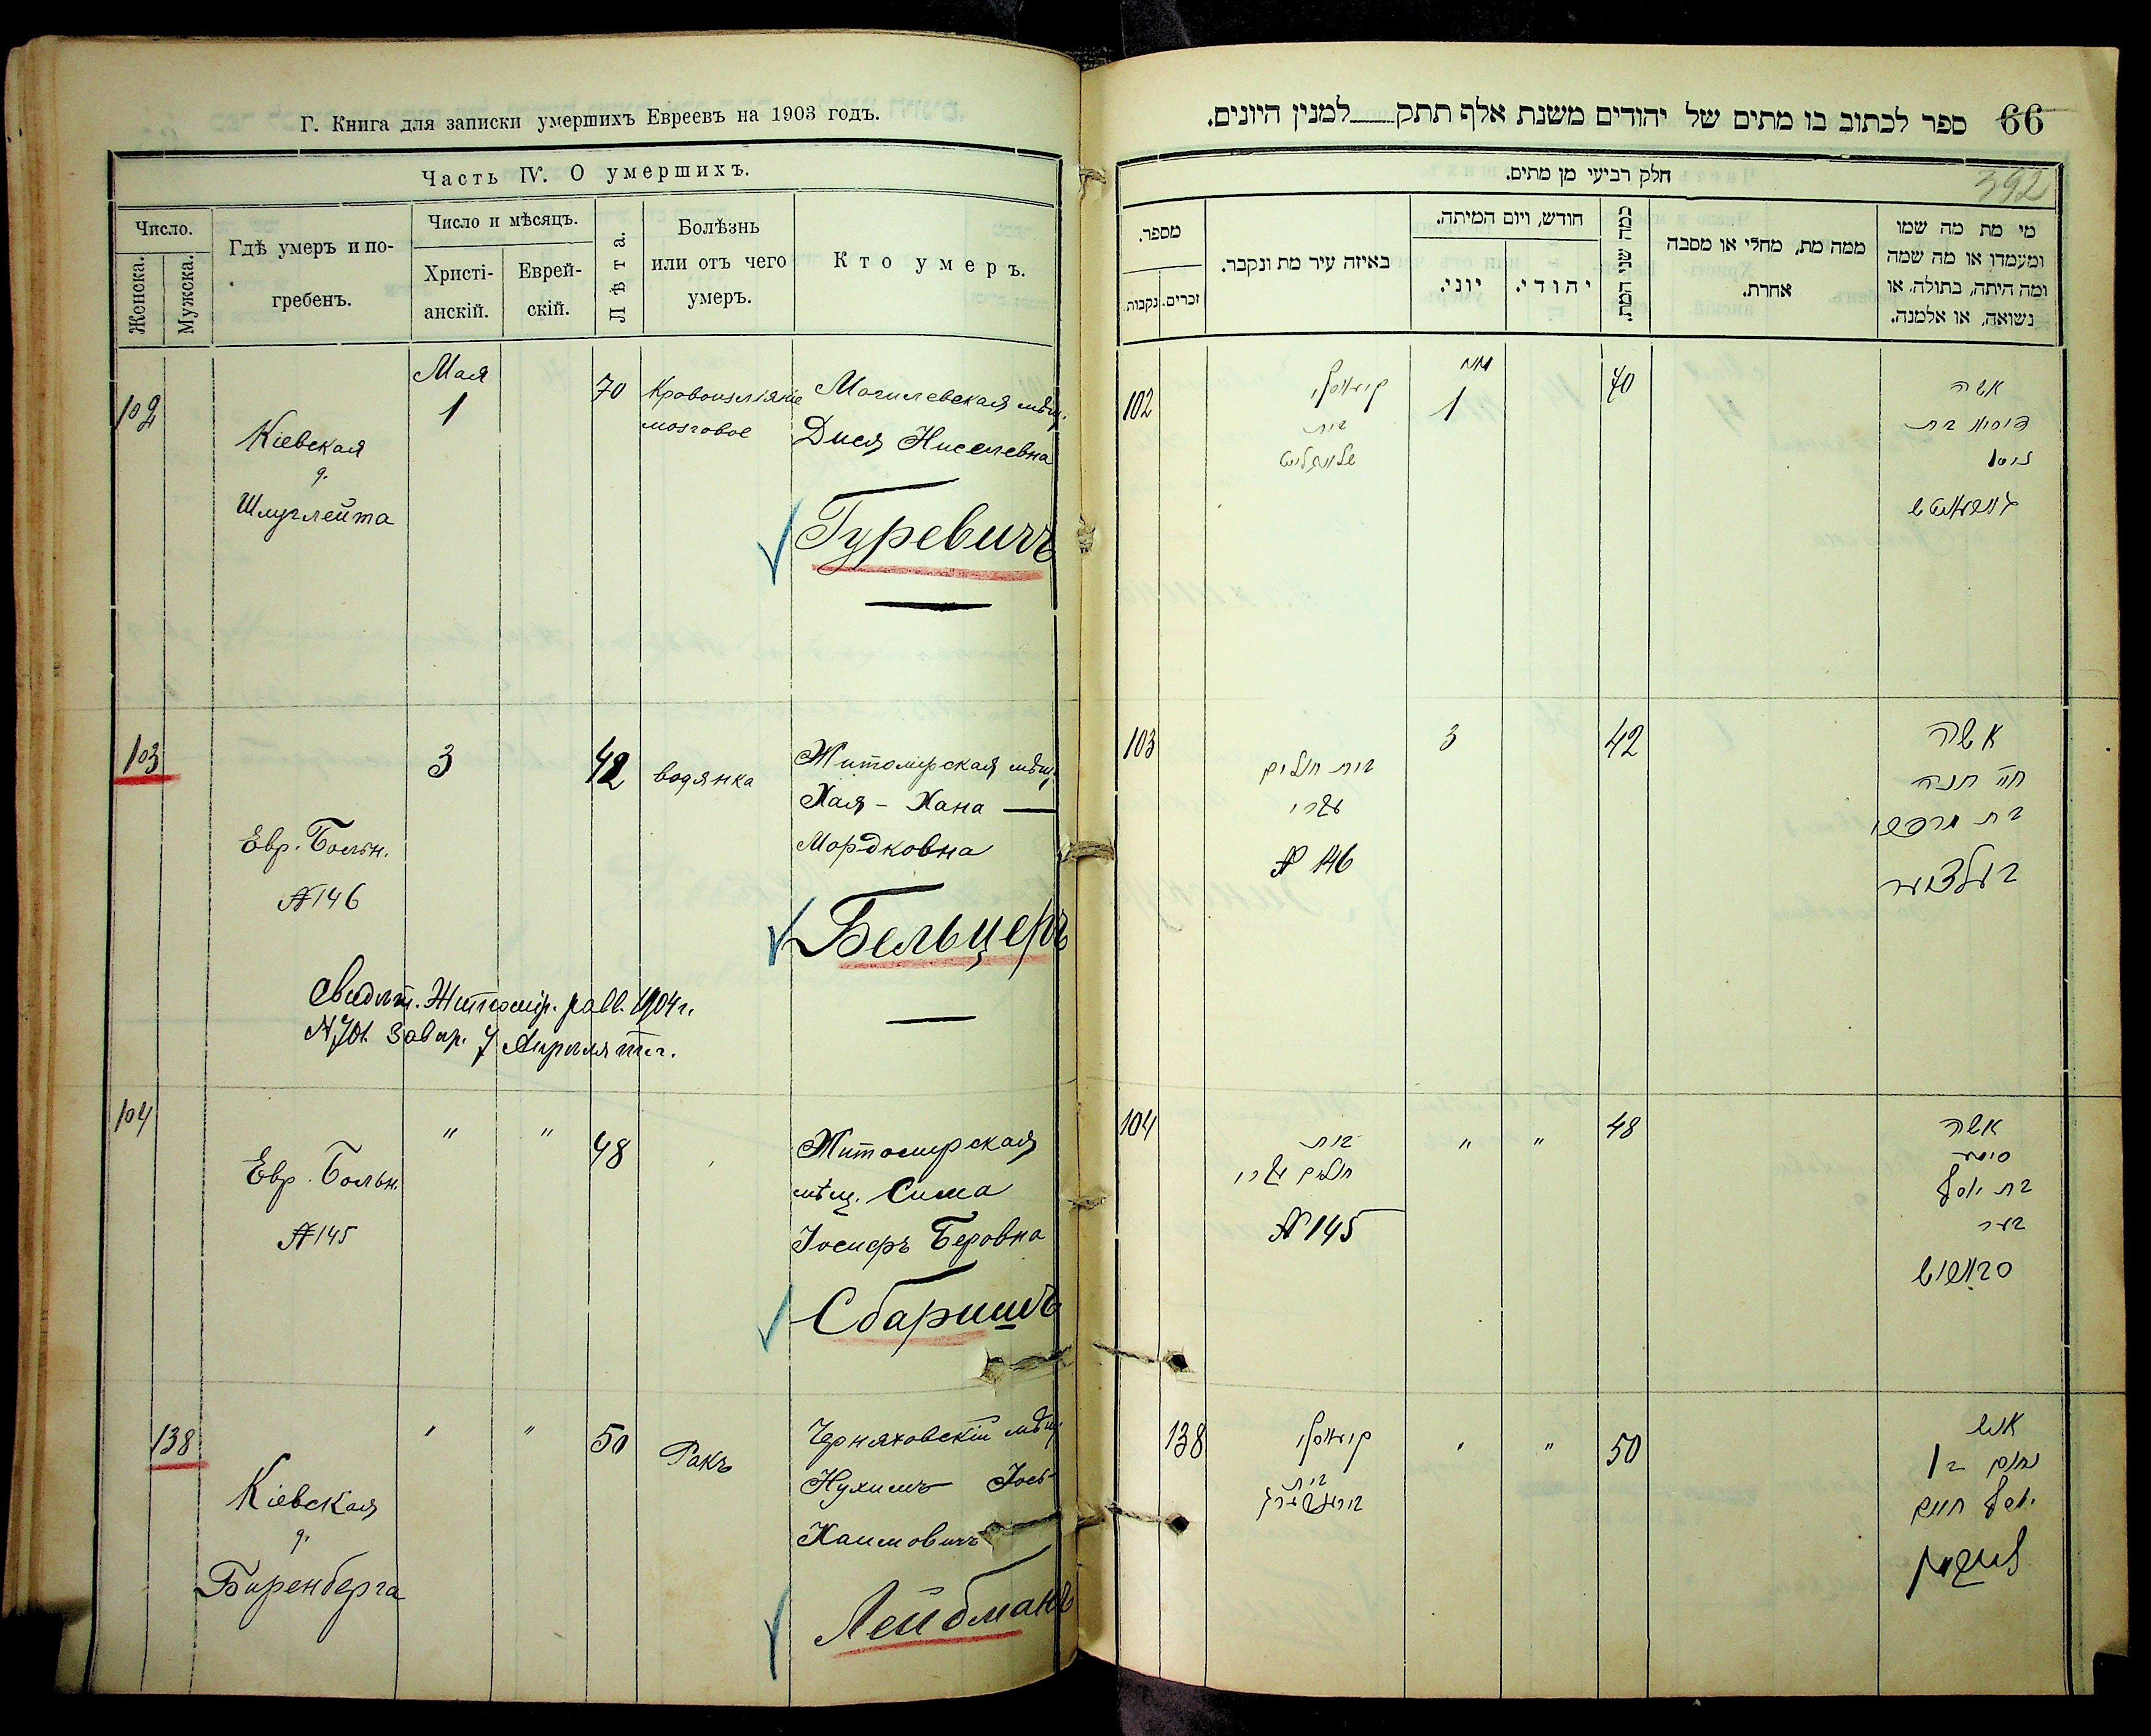 Г. Книга для записки умершихъ Евреевъ на 1903 годъ.
Часть IV. О умершихъ.
Число.
Женска.
Мужска.
Гдѣ умеръ и по-
гребенъ.
Число и мѣсяцъ.
Христі-
анскій.
Еврей-
скій.
Лѣта.
Болѣзнь
или отъ чего
умеръ.
Кто умеръ.
102
Кіевская
д.
Шмуглейта
Мая
1
70
Кровоизліяніе
мозговое
Могилевская мѣщ.
Дися Ниселевна
Гуревичъ
103
Евр. Больн.
№ 146
3
42
водянка
Житомирская мѣщ.
Хая - Хана —
Мордковна
Бельцеръ
Свидѣт. Житомір. равв. 1904 г.
7 Апрѣля т. г.
104
Евр. Больн.
№ 145
" "
48
Житомирская
мѣщ. Сима
Іосифъ Беровна
Сбаришъ
138
Кіевская
д.
Биренберга
" "
50
Ракъ
Черняховскій мѣщ.
Нухимъ Іось-
Хаимовичъ
Лейбманъ
66 ספר לכתוב בו מתים של יהודים משנת אלף תתק למנין היונים.
392
חלק רביעי מן מתים.
מספר.
נקבות.
זכרים.
באיזה עיר מת ונקבר.
חודש, ויום המיתה.
יוני.
יהודי.
כמה שני המת.
ממה מת, מחלי או מסבה
אחרת.
מי מת מה שמו
ומעמדו או מה שמה
ומה היתה, בתולה, או
נשואה, או אלמנה.
102
בית
מאי
1
70
אשה
ניסל
103
בית חולים
עברי
№ 146
3
42
אשה
חי' חנה
בת מרדכי
בעלצער
104
בית
חולים עברי
№ 145
" "
48
אשה
סימע
בת יוסף
בער
סבאריש
138
בית
בירענבערג
" "
50
איש
נחום בן
יוסף חיים
לייבמאן